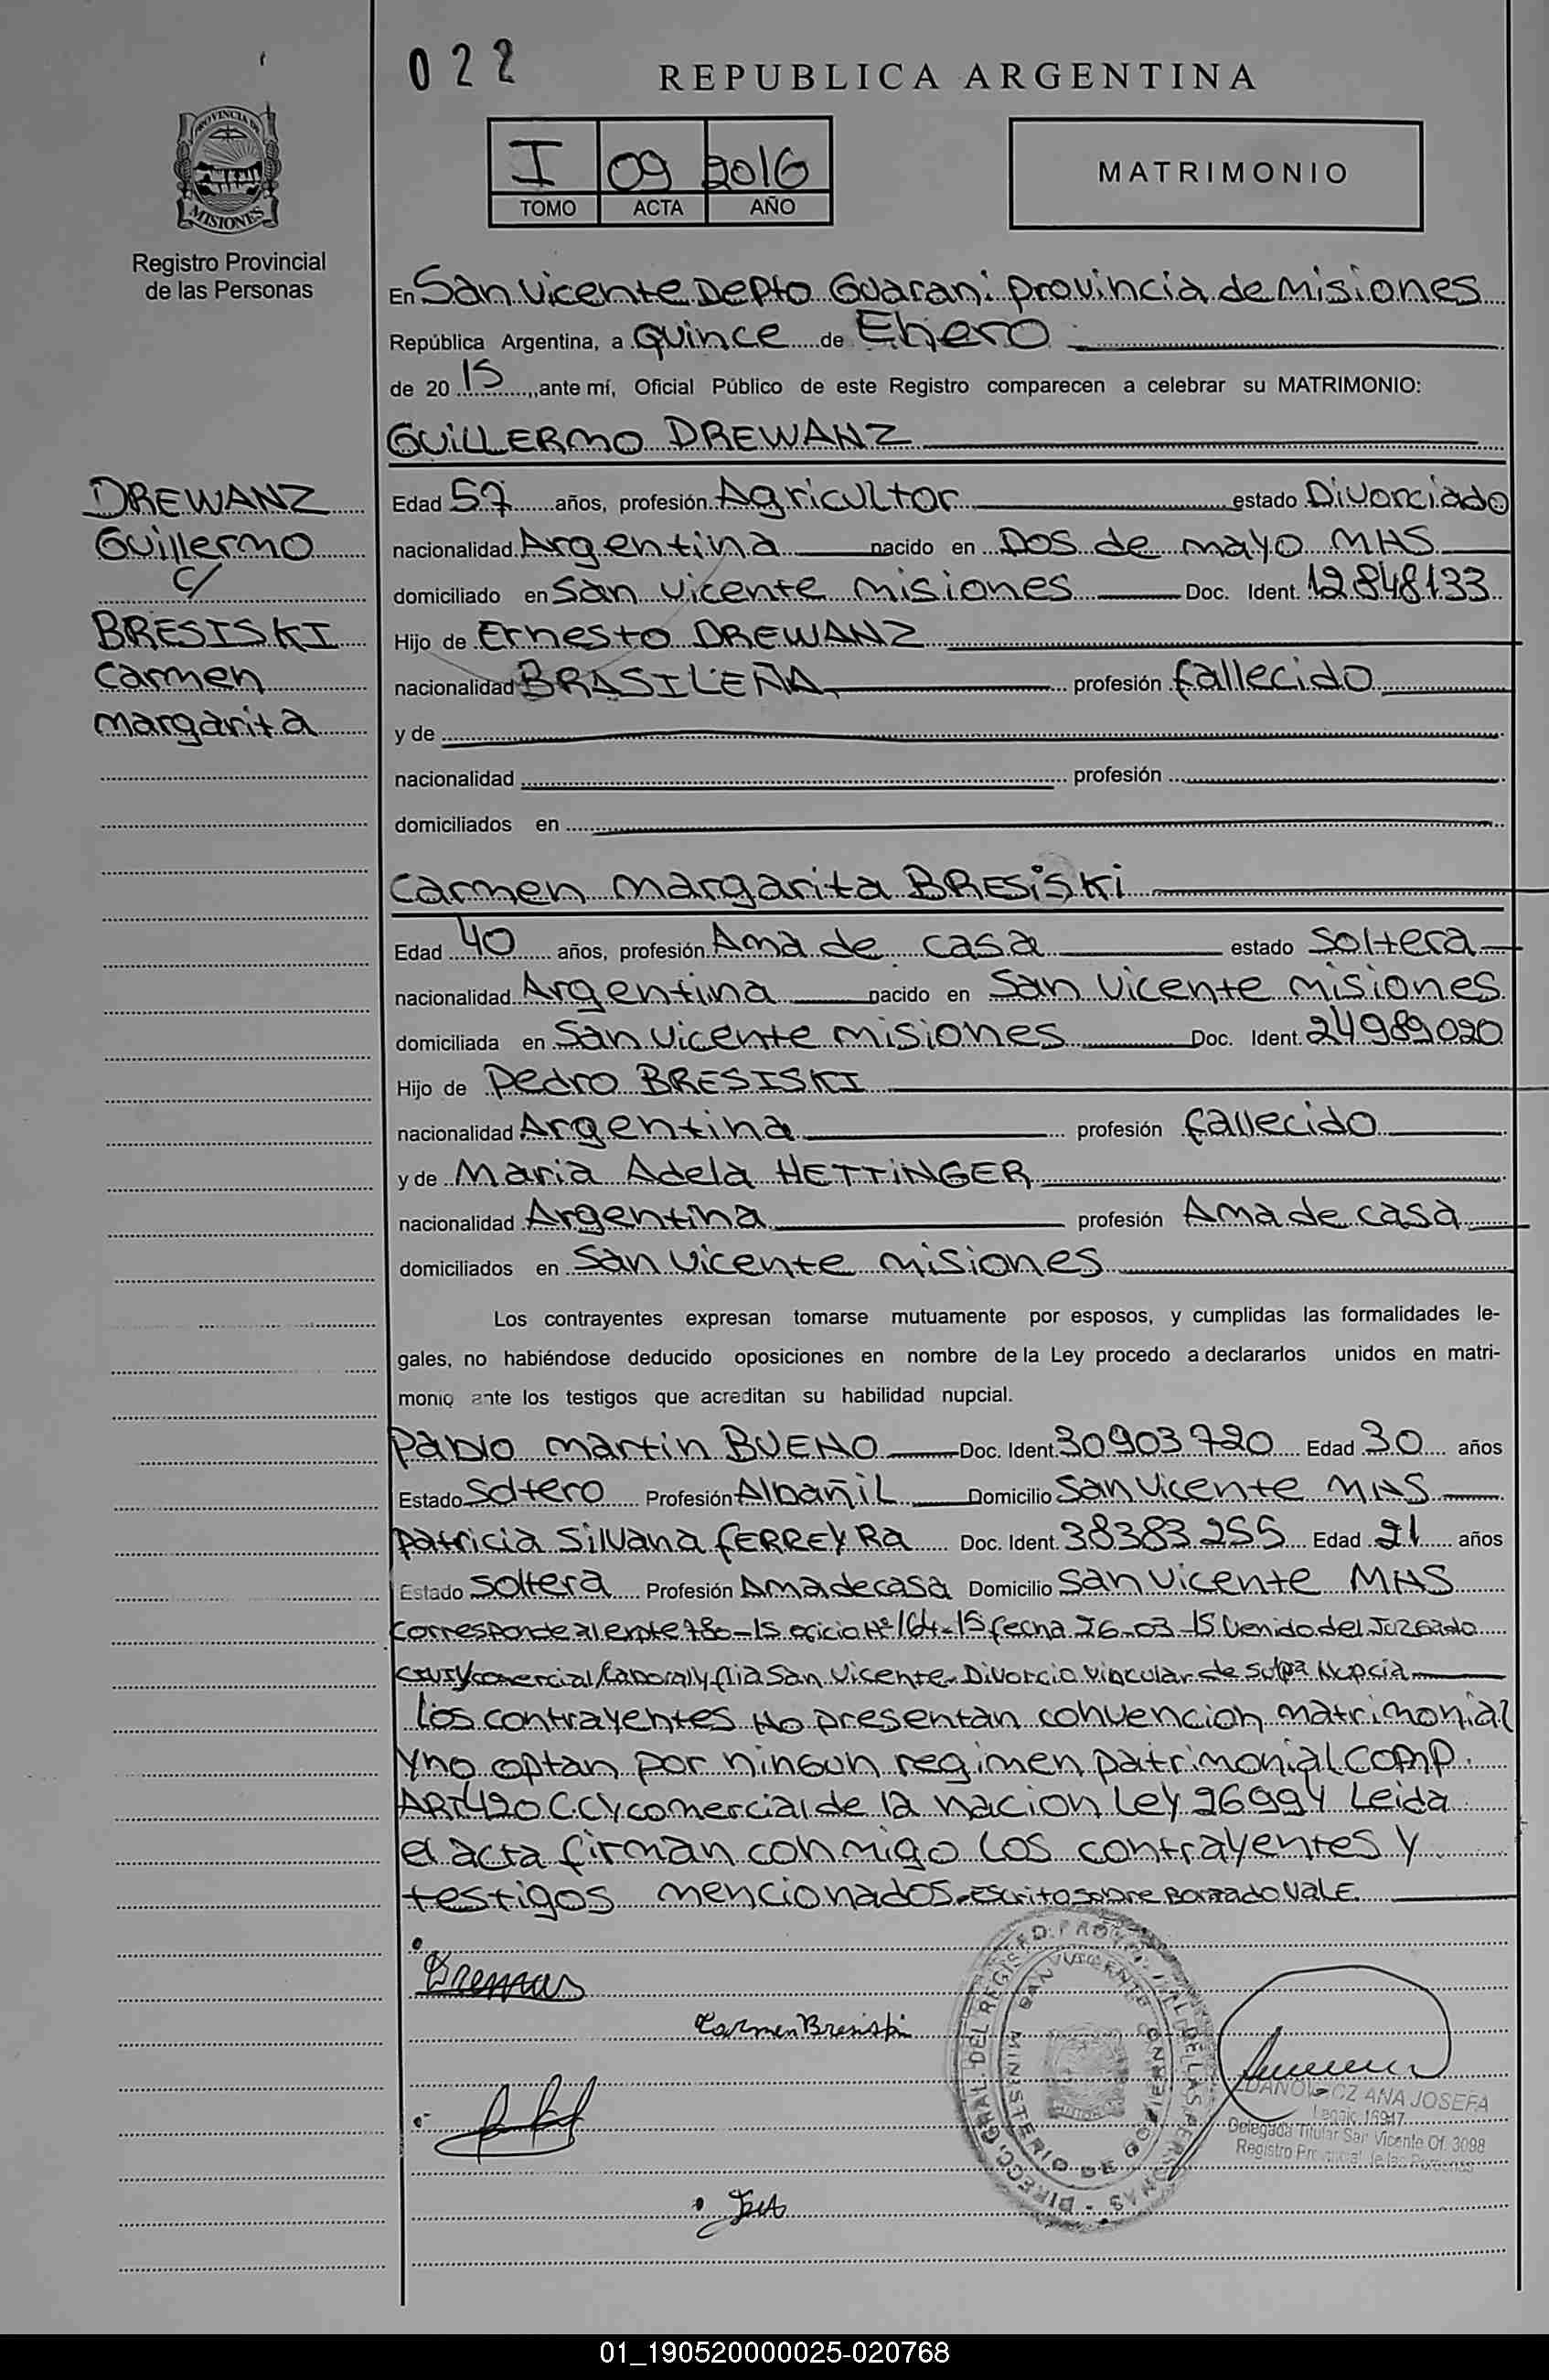 022
REPUBLICA ARGENTINA
I 09 2016
TOMO ACTA AÑO
MATRIMONIO
PROVINCIA DE
MISIONES
Registro Provincial
de las Personas
En San Vicente Depto Guarani provincia de Misiones
República Argentina, a Quince de Enero
de 20 15, ante mí, Oficial Público de este Registro comparecen a celebrar su MATRIMONIO:
GUILLERMO DREWANZ
DREWANZ
Guillermo
c/
BRESISKI
Carmen
margarita
Edad 57 años, profesión Agricultor estado Divorciado
nacionalidad Argentina nacido en Dos de mayo MNS
domiciliado en San Vicente misiones Doc. Ident. 12.848.133
Hijo de Ernesto DREWANZ
nacionalidad BRASILEÑA profesión fallecido
y de
nacionalidad profesión
domiciliados en
Carmen Margarita BRESiSKi
Edad 40 años, profesión Ama de casa estado soltera
nacionalidad Argentina nacido en San Vicente misiones
domiciliada en San Vicente misiones Doc. Ident. 24989020
Hijo de Pedro BRESISKI
nacionalidad Argentina profesión fallecido
y de Maria Adela HETTiNGER
nacionalidad Argentina profesión Ama de casa
domiciliados en San Vicente misiones
Los contrayentes expresan tomarse mutuamente por esposos, y cumplidas las formalidades le-
gales, no habiéndose deducido oposiciones en nombre de la Ley procedo a declararlos unidos en matri-
monio ante los testigos que acreditan su habilidad nupcial.
Pablo martin BUENO Doc. Ident. 30903720 Edad 30 años
Estado Soltero Profesión Albañil Domicilio San Vicente MNS
Patricia Silvana FERREYRA Doc. Ident. 38383255 Edad 21 años
Estado soltera Profesión Ama de casa Domicilio San Vicente MNS
Corresponde al expte 780-15 oficio Nº 164-15 fecha 26-03-15 Venido del Juzgado
Civil y comercial, Laboral y flia San Vicente. Divorcio Vincular de Nupcia
los contrayentes No presentan convencion matrimonial
y no optan por ningun regimen patrimonial comp.
ART 420 C.C y comercial de la nacion Ley 26994 Leida
el acta firman conmigo los contrayentes y
testigos mencionados. Escrito sobre Borrado Vale
Carmen Bresiski
DIRECC. GRAL. DEL REGISTRO PROVINCIAL DE LAS PERSONAS
SAN VICENTE
MINISTERIO DE GOBIERNO
ANA JOSEFA
Legajo 16947
Delegada Titular San Vicente Of. 3098
Registro Provincial de las Personas
01_190520000025-020768